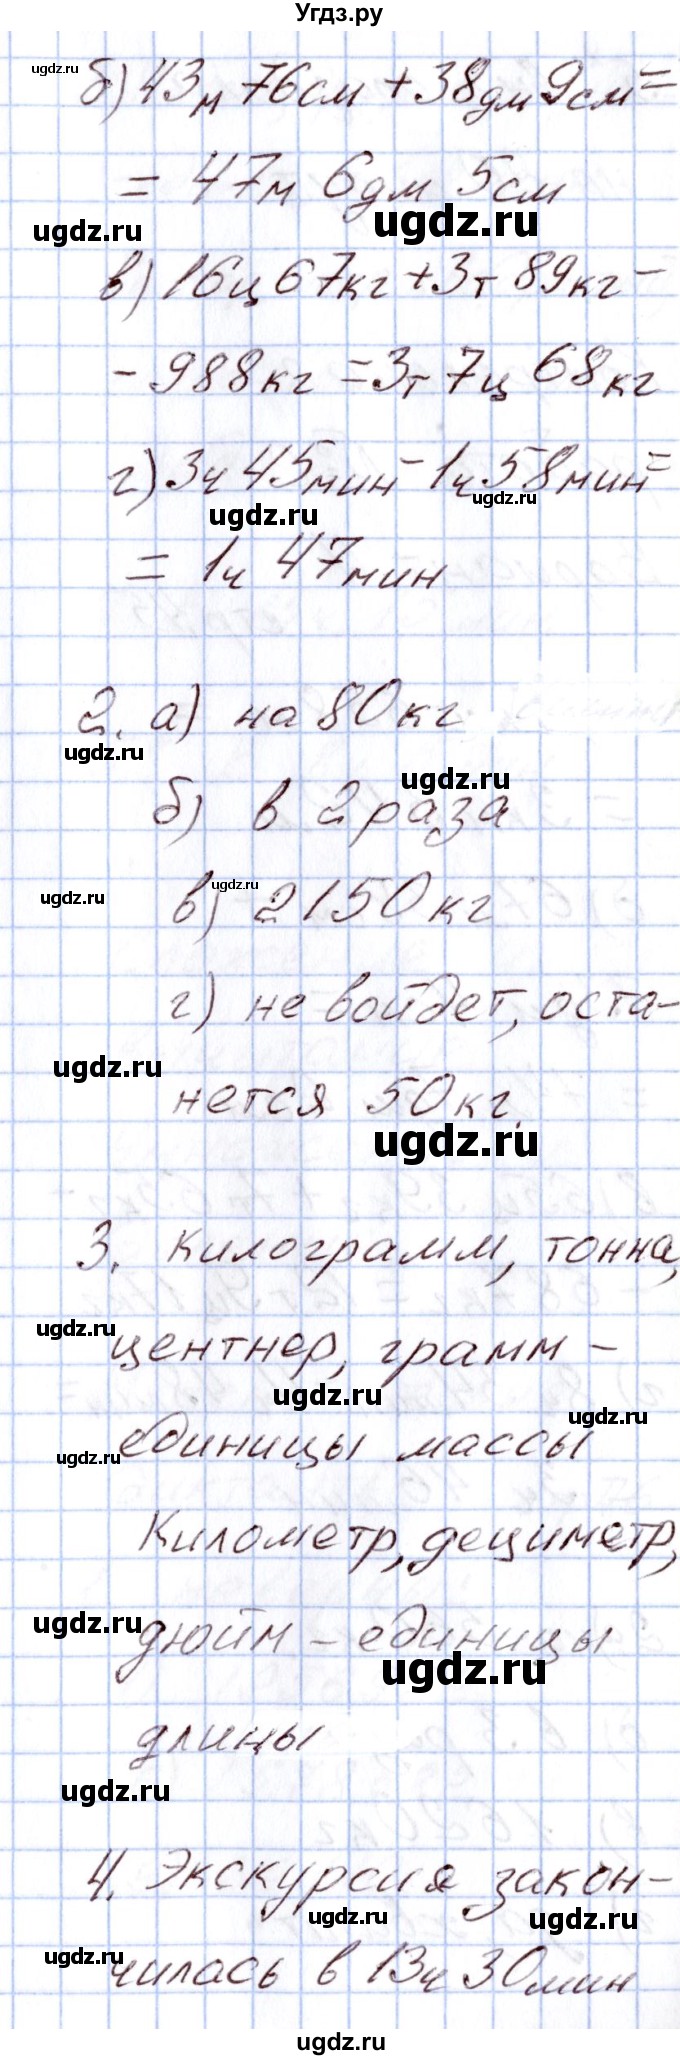 Угдз.ру
ugdz.ru
б) 43м 76см + 38дм 9см =
= 47м 6дм 5см
ugdz.ru
ugdz.ru
в) 16ц 67кг + 3т 89кг -
- 988кг = 3т 7ц 68кг
г) 3ч 45мин - 1ч 58мин =
ugdz.ru
ugdz.ru
= 1ч 47мин
2. а) на 80кг
ugdz.ru
ugdz.ru
б) в 2 раза
ugdz.ru
ugdz.ru
в) 2150кг
г) не войдет, оста-
ugdz.ru
нется 50кг.
ugdz.ru
3. Килограмм, тонна,
ugdz.ru
центнер, грамм -
ugdz.ru
ugdz.ru
единицы массы
ugdz.ru
Километр, дециметр,
ugdz.ru
дюйм - единицы
ugdz.ru
длины
ugdz.ru
4. Экскурсия закон-
ugdz.ru
ugdz.ru
ugdz.ru
чилась в 13ч 30мин
ugdz.ru